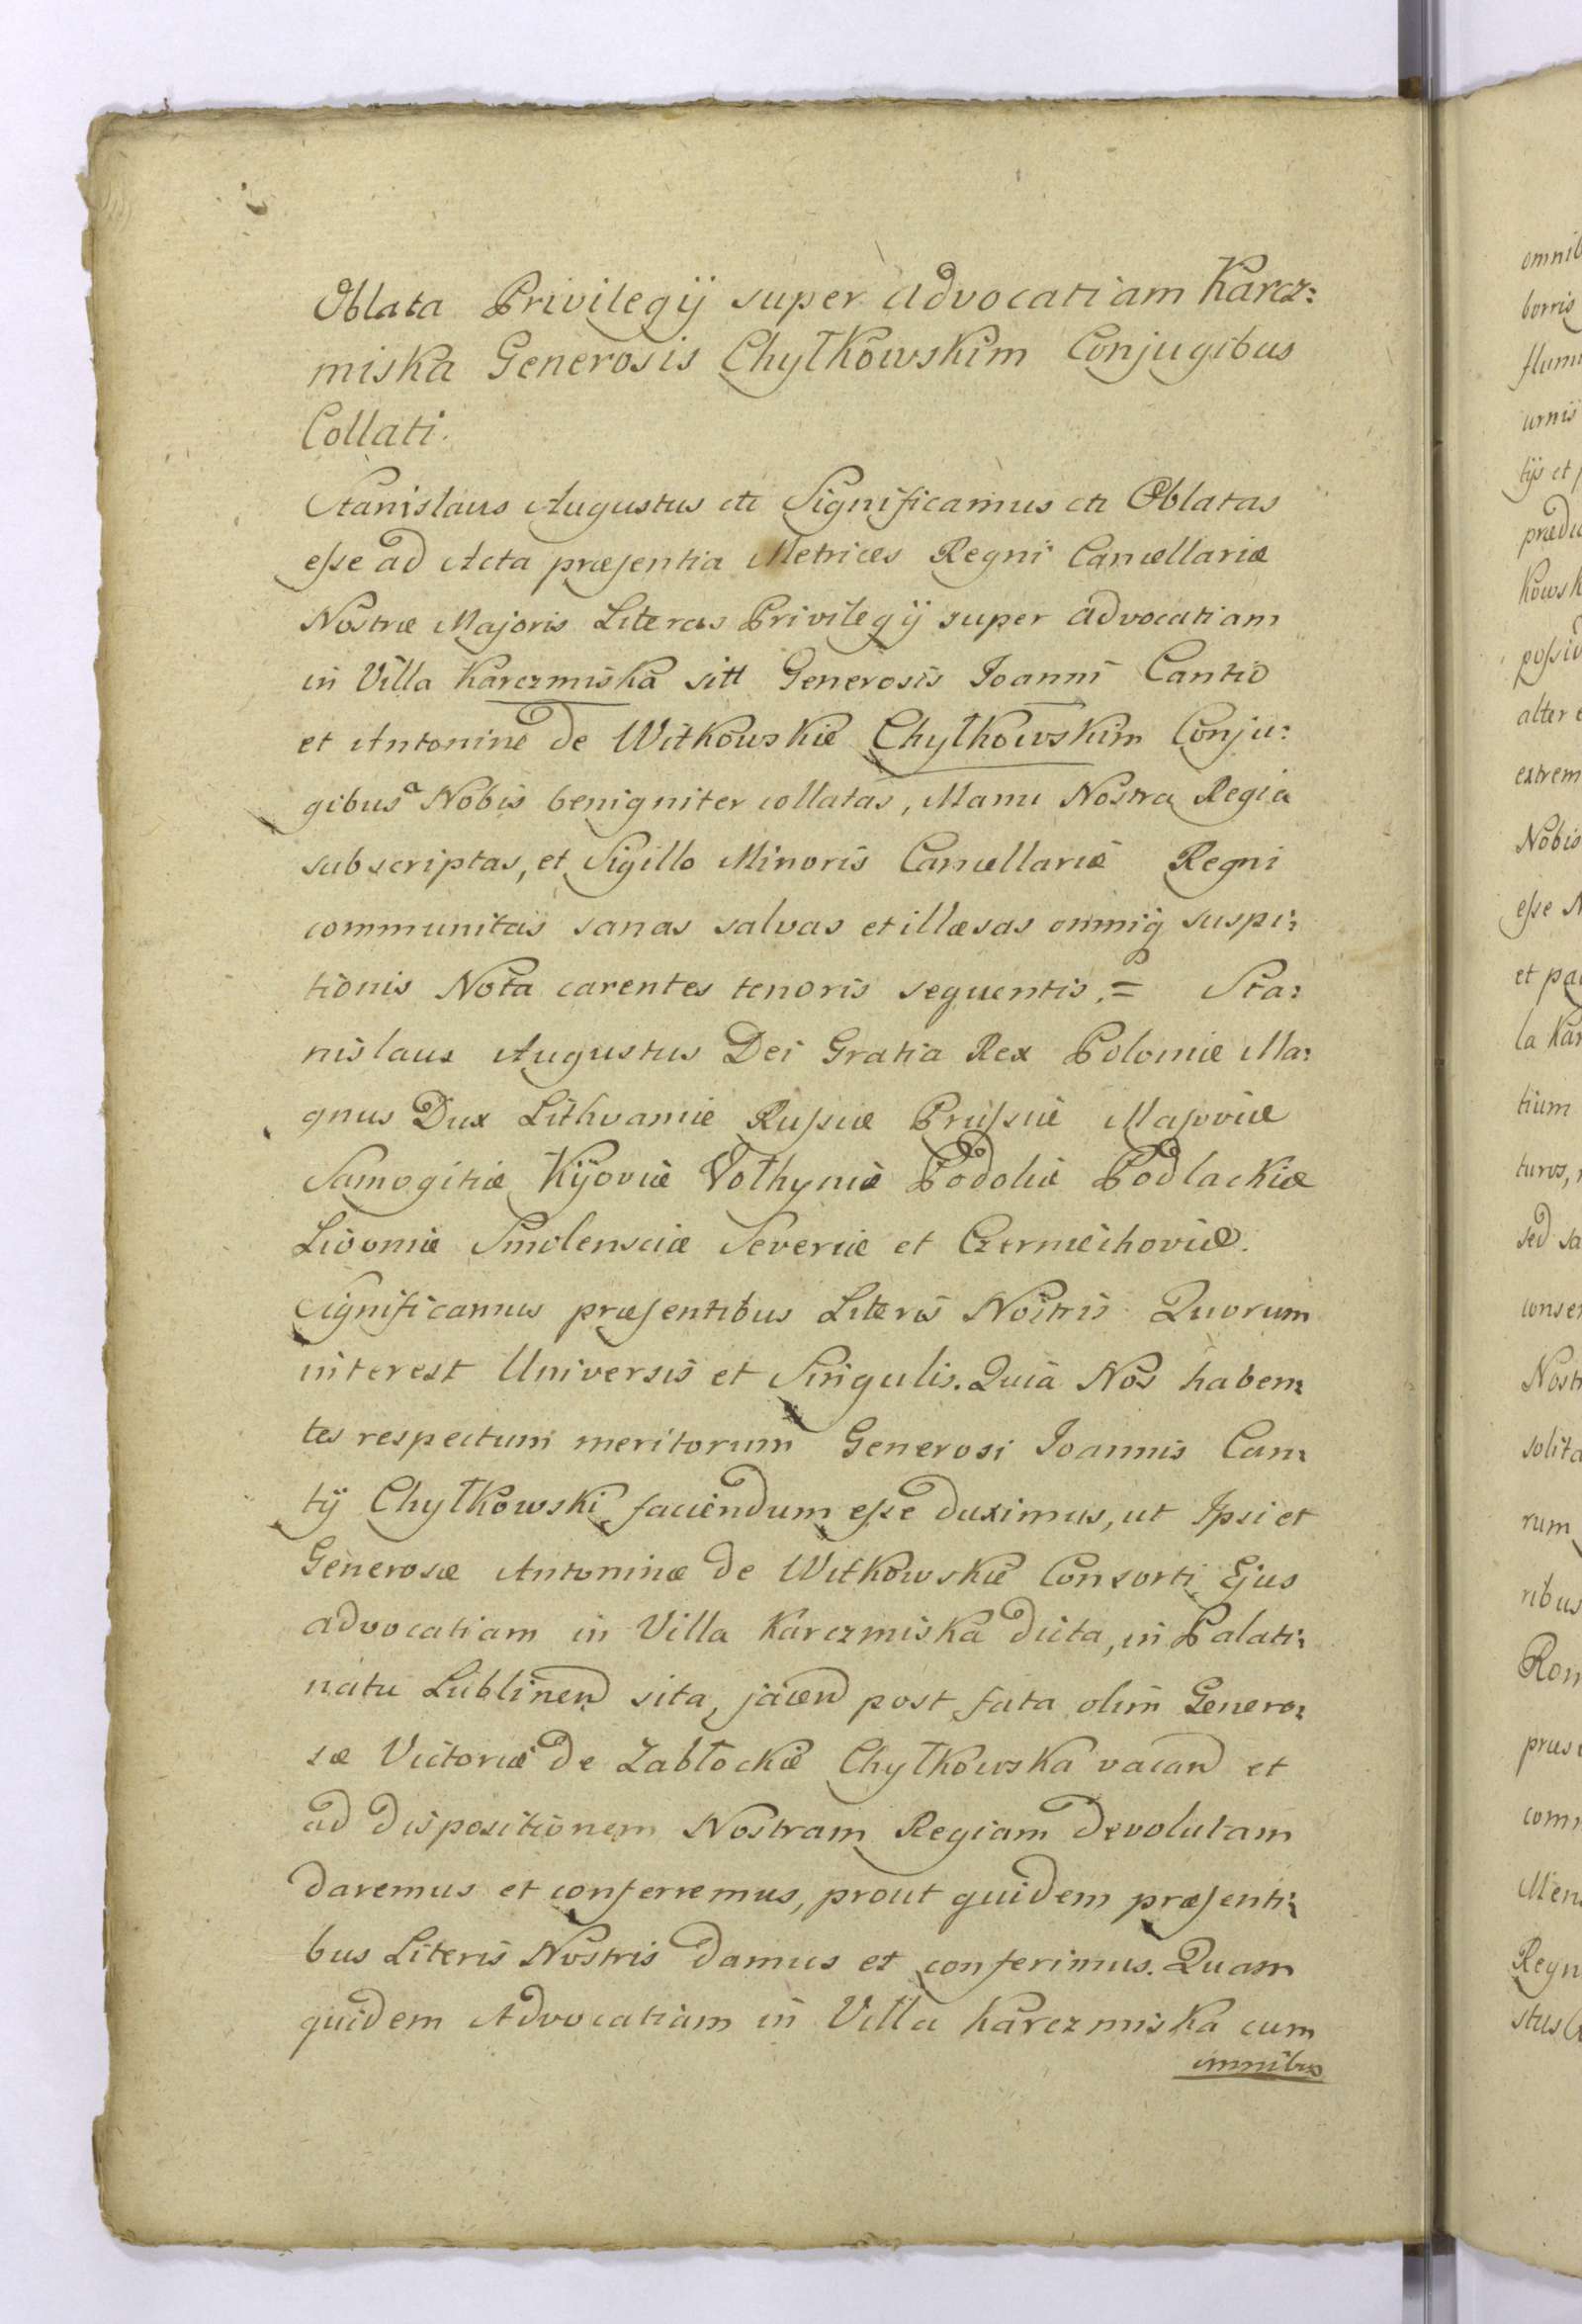 Oblata Privilegij super Advocatiam Karcz:
miska Generosis Chyłkowskim Conjugibus
Collati.
Stanislaus Augustus etc Significamus etc Oblatas
esse ad Acta præsentia Metrices Regni Cancellariæ
Nostræ Majoris Literas Privilegij super advocatiam
in Villa Karczmiska sitt Generosis Joanni Cantio
et Antoninæ de Witkowskie Chyłkowskim Conju:
gibus a Nobis benigniter collatas, Manu Nostra Regia
subscriptas, et Sigillo Minoris Cancellariæ Regni
communitas sanas salvas et illæsas omniq suspi:
tionis Nota carentes tenoris sequentis = Sta:
nislaus Augustus Dei Gratia Rex Poloniæ Ma:
gnus Dux Lithvaniæ Russiæ Prussiæ Masoviæ
Samogitiæ Kijoviæ Volhyniæ Podoliæ Podlachiæ
Livoniæ Smolensciæ Severiæ et Czerniechoviæ.
Significamus præsentibus Literis Nostris Quorum
interest Universis et Singulis. Quia Nos haben:
tes respectum meritorum Generosi Joannis Can:
tij Chyłkowski faciendum esse duximus, ut Ipsi et
Generosæ Antoninæ de Witkowskie Consorti Ejus
advocatiam in Villa Karczmiska dicta, in Palati:
natu Lublinen sita, jacen post fata olim Genero:
sæ Victoriæ de Zabłockie Chyłkowska vacan et
ad dispositionem Nostram Regiam devolutam
daremus et conferremus, prout quidem præsenti:
bus Literis Nostris damus et conferimus. Quam
quidem Advocatiam in Villa Karczmiska cum
omnibus
omnib
borris
urnis
tijs et
Kowsk
alter
extrem
Nobis
esse N
et pa
la Kar
tium
turos,
sed sa
conse
Nost
solita
rum
ribus
Rom
com
Regn
stus